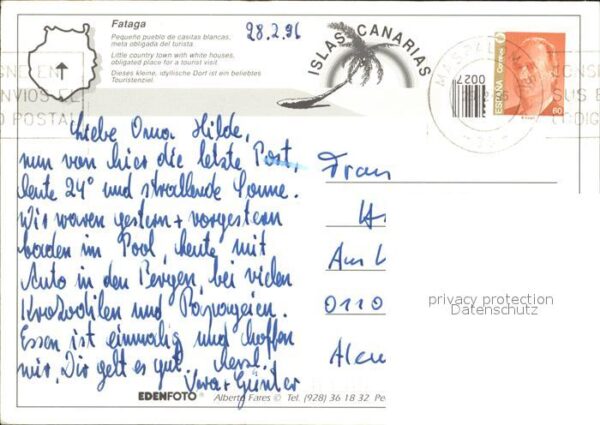 Fataga
Pequeño pueblo de casitas blancas,
meta obligada del turista
Little country town with white houses,
obligated place for a tourist visit
Dieses kleine, idyllische Dorf ist ein beliebtes
Touristenziel
28.2.96
ISLAS CANARIAS
0027
ESPAÑA
Correos
Liebe Oma Hilde,
nun von hier die letzte Post,
heute 24° und strahlende Sonne.
Wir waren gestern + vorgestern
baden im Pool, heute mit
Auto in den Bergen, bei vielen
Krokodilen und Papageien.
Essen ist einmalig und hoffen
wir, Dir geht es gut. herzl.
Günter
0110
privacy protection
Datenschutz
EDENFOTO ® Alberto Fares © Tel. (928) 36 18 32